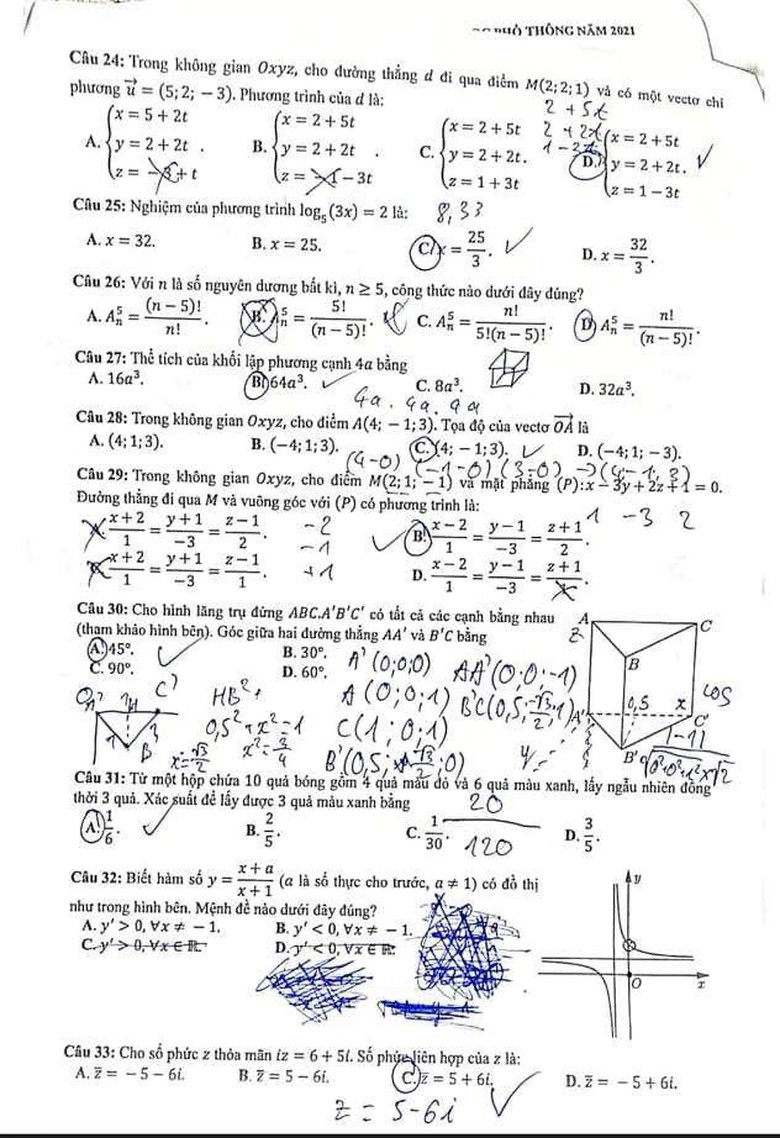 THÔNG NĂM 2021
Câu 24: Trong không gian Oxyz, cho đường thẳng d đi qua điểm M(2; 2; 1) và có một vectơ chỉ
phương u⃗ = (5; 2; −3). Phương trình của d là:
2 + 5t
2 + 2t
1 - 3t
A. {x = 5 + 2t
y = 2 + 2t .
z = + t
B. {x = 2 + 5t
y = 2 + 2t .
z = − 3t
C. {x = 2 + 5t
y = 2 + 2t.
z = 1 + 3t
D. {x = 2 + 5t
y = 2 + 2t.
z = 1 − 3t
Câu 25: Nghiệm của phương trình log₅(3x) = 2 là: 8,33
A. x = 32. B. x = 25. C. x = 25/3. D. x = 32/3.
Câu 26: Với n là số nguyên dương bất kì, n ≥ 5, công thức nào dưới đây đúng?
A. Aₙ⁵ = (n − 5)!/n!. B. Aₙ⁵ = 5!/(n − 5)!. C. Aₙ⁵ = n!/5!(n − 5)!. D. Aₙ⁵ = n!/(n − 5)!.
Câu 27: Thể tích của khối lập phương cạnh 4a bằng
A. 16a³. B. 64a³. C. 8a³. D. 32a³.
4a . 4a . 4a
Câu 28: Trong không gian Oxyz, cho điểm A(4; −1; 3). Tọa độ của vectơ OA⃗ là
A. (4; 1; 3). B. (−4; 1; 3). C. (4; −1; 3). D. (−4; 1; −3).
(4-0) (-1-0) (3-0) → (4; -1; 3)
Câu 29: Trong không gian Oxyz, cho điểm M(2; 1; −1) và mặt phẳng (P): x − 3y + 2z + 1 = 0.
Đường thẳng đi qua M và vuông góc với (P) có phương trình là:
(x + 2)/1 = (y + 1)/−3 = (z − 1)/2. B. (x − 2)/1 = (y − 1)/−3 = (z + 1)/2.
-2
-1
+1
1 -3 2
(x + 2)/1 = (y + 1)/−3 = (z − 1)/1. D. (x − 2)/1 = (y − 1)/−3 = (z + 1)/
Câu 30: Cho hình lăng trụ đứng ABC.A'B'C' có tất cả các cạnh bằng nhau
(tham khảo hình bên). Góc giữa hai đường thẳng AA' và B'C bằng
A. 45°. B. 30°.
C. 90°. D. 60°.
A'(0;0;0) AA'(0;0;-1)
A(0;0;1) B'C(0,5;-√3/2;1)
C(1;0;1)
B'(0,5; √3/2;0)
HB²+
0,5² + x² = 1
x² = 3/4
x = √3/2
C'
B
A
C
B
0,5
x
A'
C'
B'
cos
|-1|
Câu 31: Từ một hộp chứa 10 quả bóng gồm 4 quả màu đỏ và 6 quả màu xanh, lấy ngẫu nhiên đồng
thời 3 quả. Xác suất để lấy được 3 quả màu xanh bằng
20
120
A. 1/6. B. 2/5. C. 1/30. D. 3/5.
Câu 32: Biết hàm số y = (x + a)/(x + 1) (a là số thực cho trước, a ≠ 1) có đồ thị
như trong hình bên. Mệnh đề nào dưới đây đúng?
A. y' > 0, ∀x ≠ − 1. B. y' < 0, ∀x ≠ − 1.
C. y' > 0, ∀x ∈ ℝ. D. y' < 0, ∀x ∈ ℝ.
y
O
x
Câu 33: Cho số phức z thỏa mãn iz = 6 + 5i. Số phức liên hợp của z là:
A. z̄ = − 5 − 6i. B. z̄ = 5 − 6i. C. z̄ = 5 + 6i. D. z̄ = − 5 + 6i.
z = 5-6i